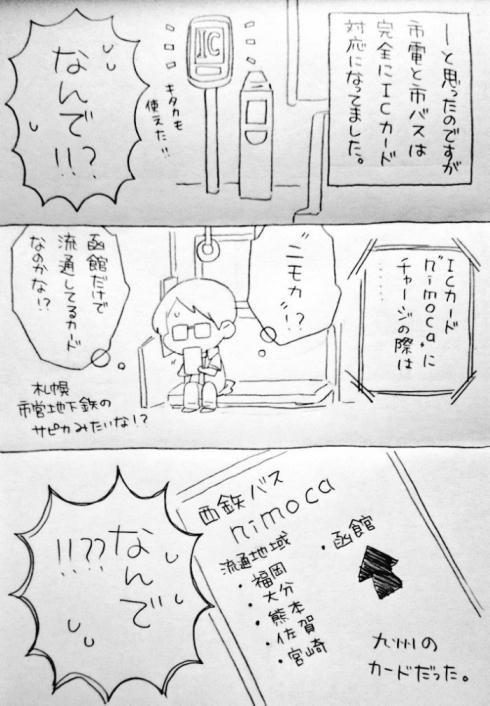 ーと思ったのですが
市電と市バスは
完全にICカード
対応になってました。
IC
キタカも
使えた!!
なんで!!?
ICカード
nimoca.に
チャージの際は
……
"ニモカ"!?
函館だけで
流通してるカード
なのかな!?
札幌
市営地下鉄の
サピカみたいな!?
西鉄バス
nimoca
流通地域
・福岡
・大分
・熊本
・佐賀
・宮崎
・函館
九州の
カードだった。
なんで
!!??